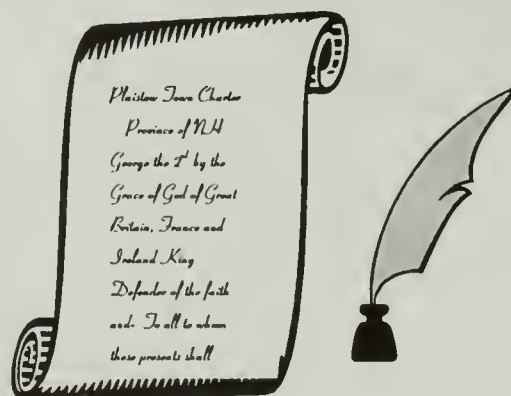 Plaistow Town Charter
Province of NH
George the 2d by the
Grace of God of Great
Britain, France and
Ireland King
Defender of the faith
and- To all to whom
these presents shall